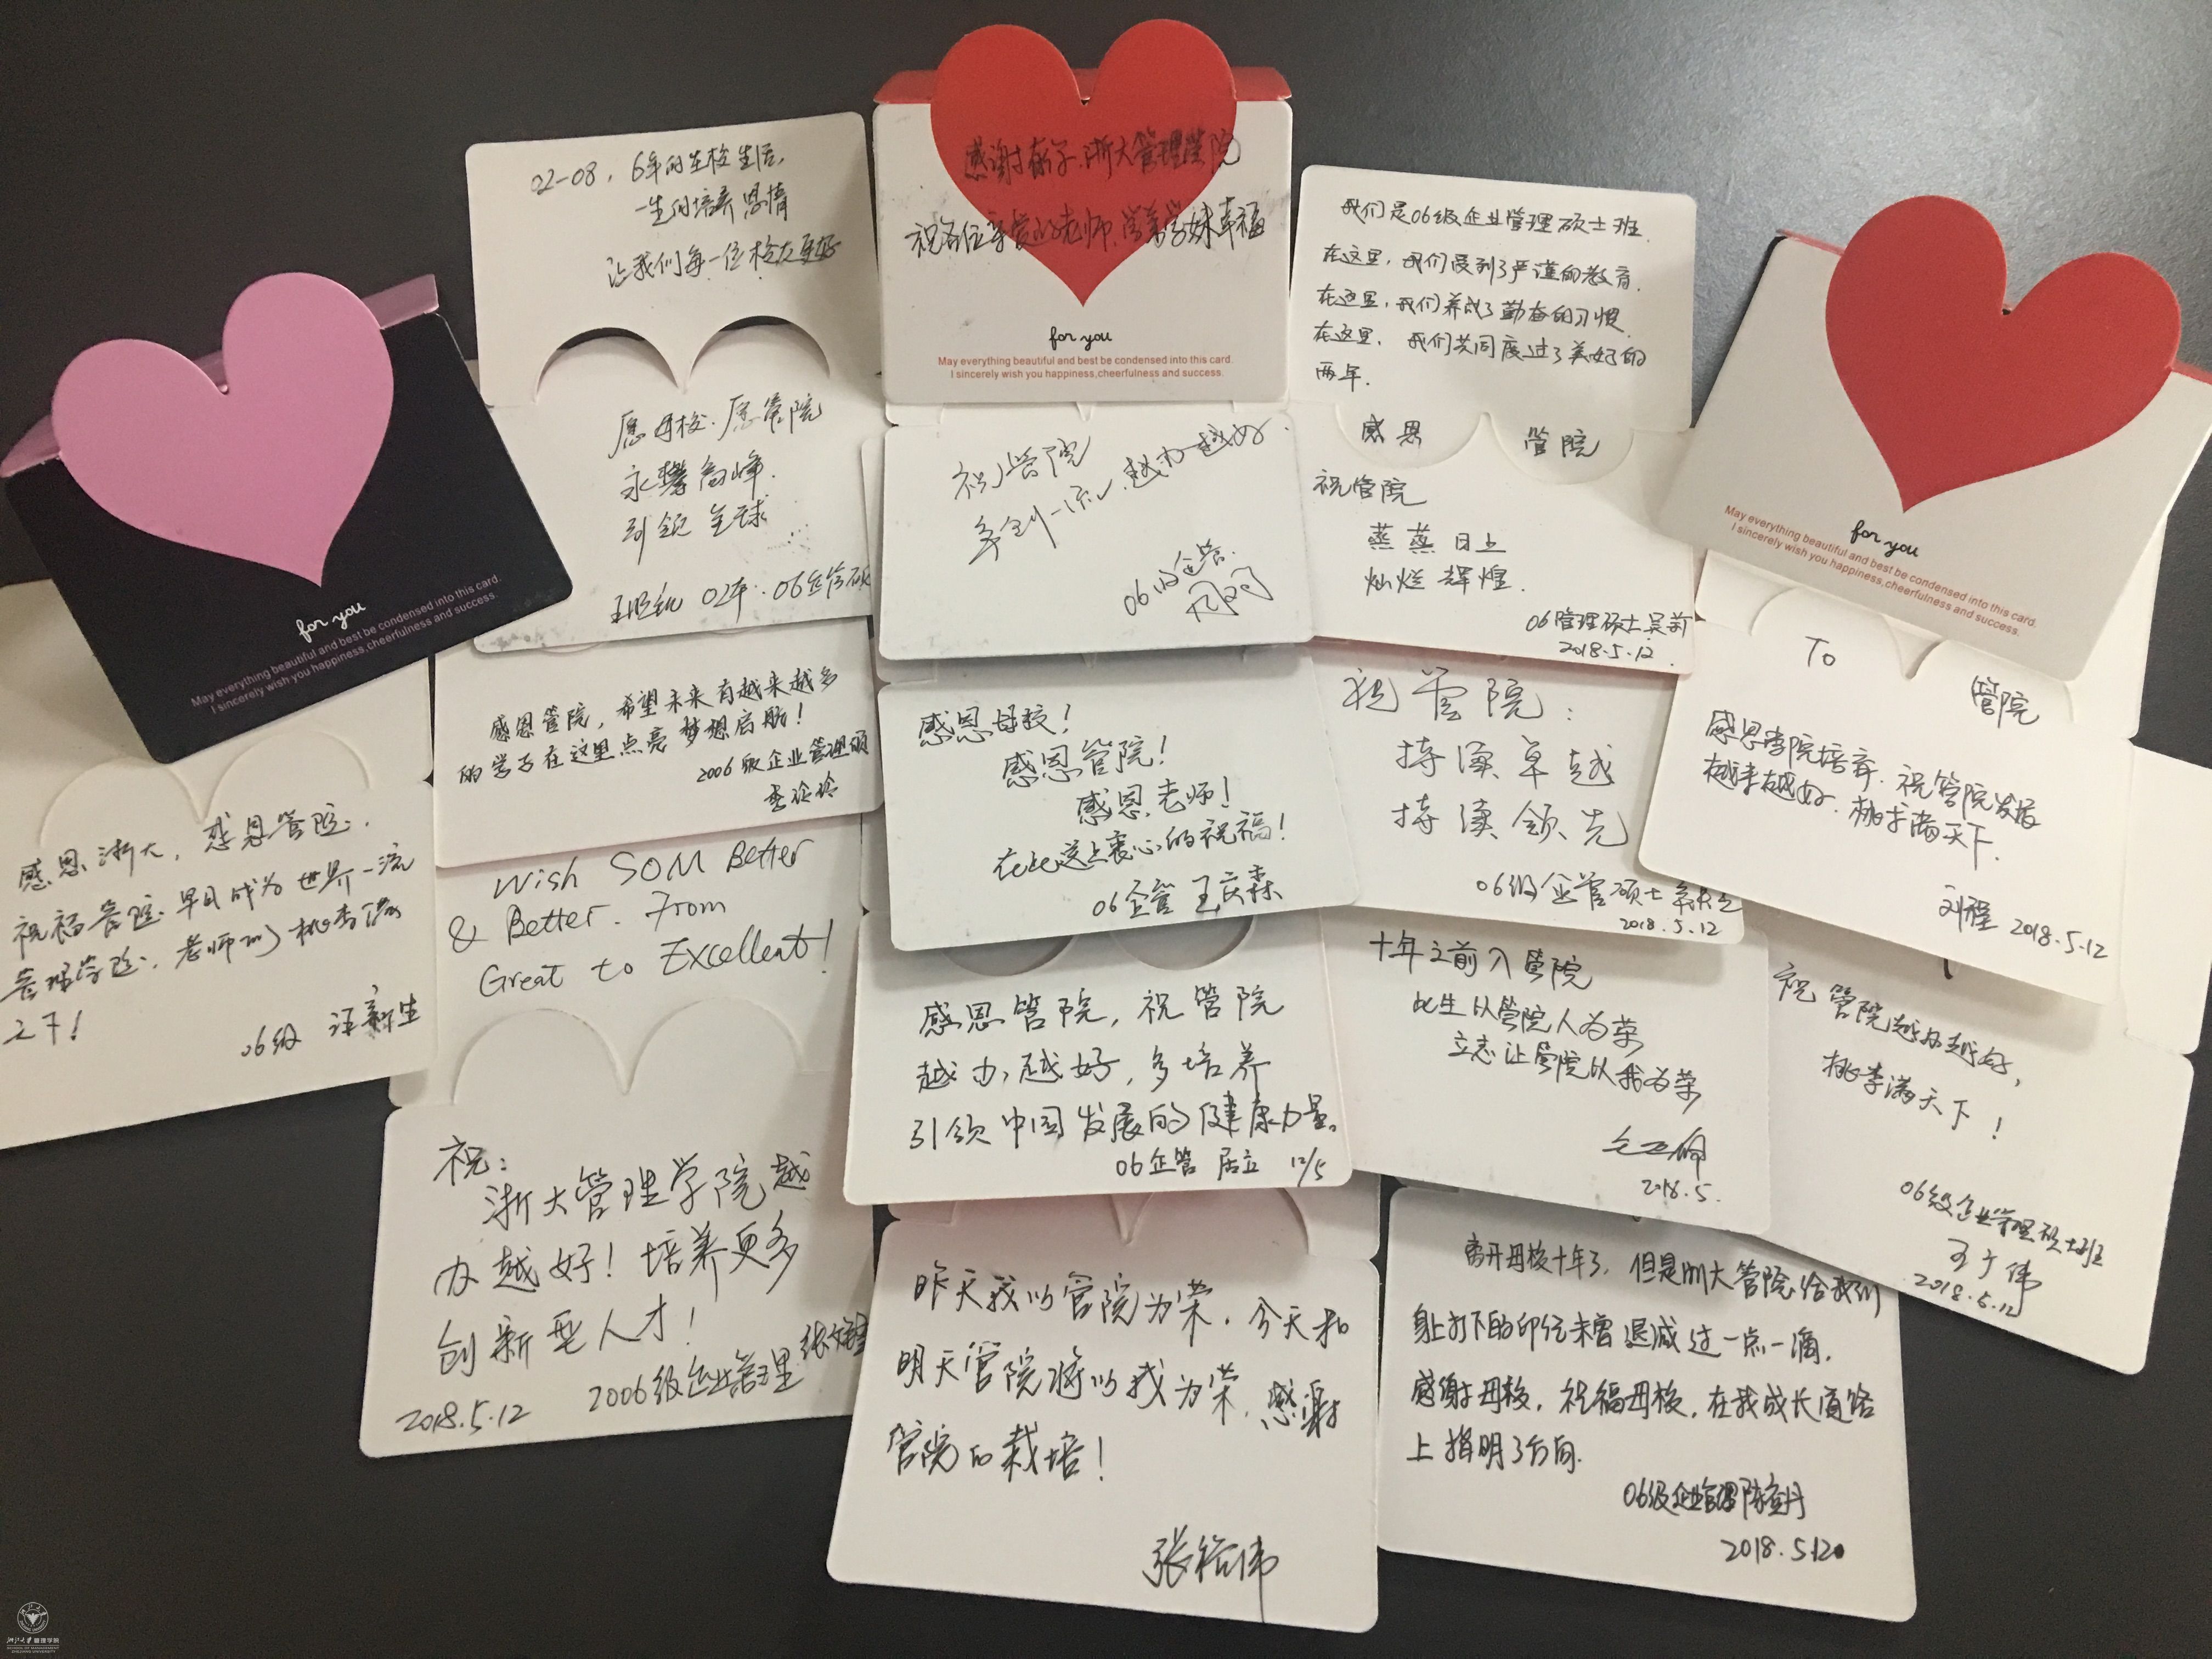 02-08，6年的在校生活，
一生的培养恩情
让我们每一位校友更好
愿母校、愿管院
永攀高峰
引领全球
02本·06企管硕
浙大管理学院
祝各位亲爱的老师、学弟学妹幸福
for you
May everything beautiful and best be condensed into this card.
I sincerely wish you happiness,cheerfulness and success.
祝管院
争创一流，越办越好．
06级企管
我们是06级企业管理硕士班．
在这里，我们受到了严谨的教育．
在这里，我们养成了勤奋的习惯．
在这里，我们共同度过了美好的
两年．
感恩 管院
祝管院
蒸蒸日上
灿烂辉煌．
06管理硕士吴
2018.5.12.
for you
May everything beautiful and best be condensed into this card.
I sincerely wish you happiness,cheerfulness and success.
for you
May everything beautiful and best be condensed into this card.
I sincerely wish you happiness,cheerfulness and success.
感恩浙大，感恩管院．
祝福管院早日成为世界一流
管理学院，老师们桃李满
天下！
06级 汪新生
感恩管院，希望未来有越来越多
的学子在这里点亮梦想启航！
2006级企业管理硕
Wish SOM Better
& Better. From
Great to Excellent!
祝：
浙大管理学院越
办越好！培养更多
创新型人才！
2006级企业管理
2018.5.12
感恩母校！
感恩管院！
感恩老师！
在此送上衷心的祝福！
06企管 王庆森
感恩管院，祝管院
越办越好，多培养
引领中国发展的健康力量。
06企管 居立 12/5
昨天我以管院为荣，今天和
明天管院将以我为荣．感谢
管院的栽培！
张裕伟
祝管院：
持续卓越
持续领先
06级企管硕士
2018.5.12
十年之前入管院
此生以管院人为荣
立志让管院以我为荣
2018.5.
To
管院
感恩学院培育．祝管院发展
越来越好．桃李满天下．
刘程 2018.5.12
祝管院越办越好，
桃李满天下！
06级企业管理硕士班
2018.5.12
离开母校十年了，但是浙大管院给我们
身上打下的印记未曾退减过一点一滴．
感谢母校，祝福母校，在我成长道路
上指明了方向．
06级企业管理陈
2018.5.12
浙江大学管理学院
SCHOOL OF MANAGEMENT
ZHEJIANG UNIVERSITY